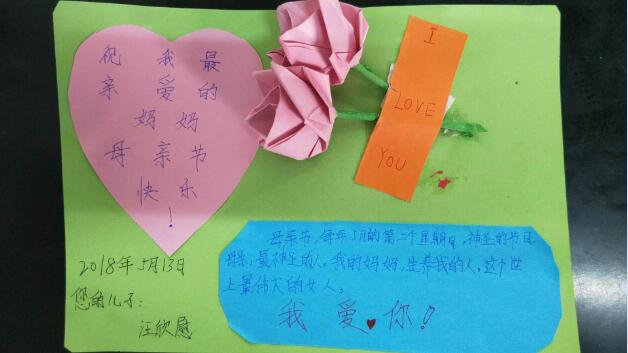 祝我最
亲爱的
妈妈
母亲节
快乐
!
I
LOVE
YOU
母亲节,每年5月的第二个星期日,神圣的节日.
母亲,最神圣的人。我的妈妈,生养我的人,这个世
上最伟大的女人。
我爱你!
2018年5月13日
您的儿子:
汪欣慰